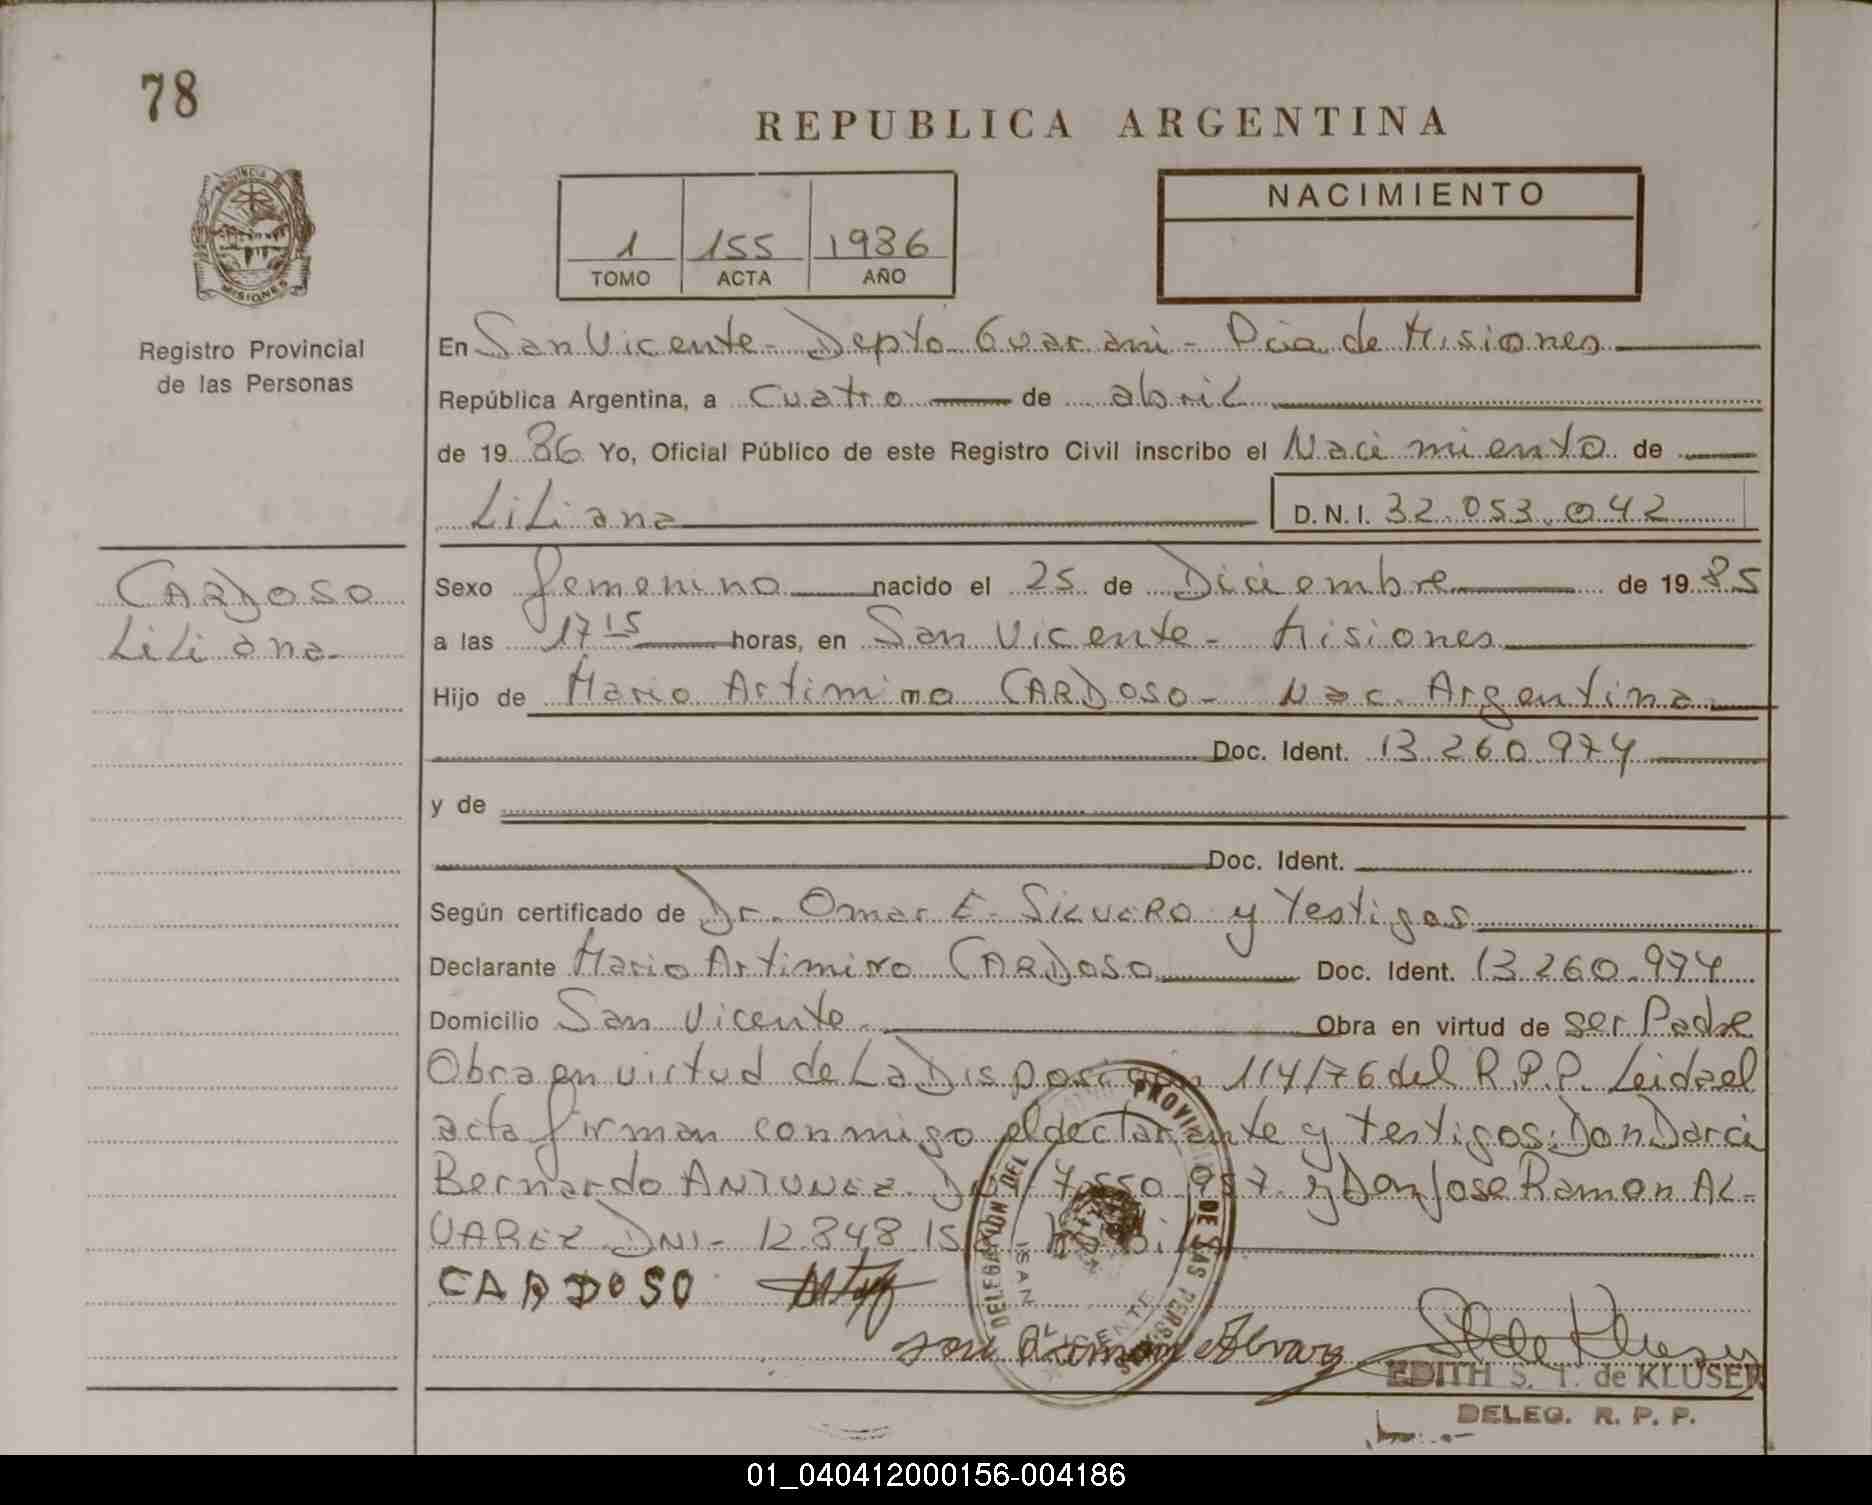 78
REPUBLICA ARGENTINA
PROVINCIA DE
MISIONES
1 155 1986
TOMO ACTA AÑO
NACIMIENTO
Registro Provincial
de las Personas
En San Vicente - Depto Guarani - Pcia de Misiones
República Argentina, a cuatro de abril
de 19 86 Yo, Oficial Público de este Registro Civil inscribo el Nacimiento de
Liliana D.N.I. 32.053.042
CARDOSO
Liliana
Sexo femenino nacido el 25 de Diciembre de 19 85
a las 17 15 horas, en San Vicente - Misiones
Hijo de Mario Artimino CARDOSO - Nac. Argentina
Doc. Ident. 13.260.974
y de
Doc. Ident.
Según certificado de Dr. Omar E. SILVERO y Testigos
Declarante Mario Artimino CARDOSO Doc. Ident. 13.260.974
Domicilio San Vicente Obra en virtud de ser Padre
Obra en virtud de La Disposición 114/76 del R.P.P. Leida el
acta firman conmigo el declarante y testigos: Don Darci
Bernardo ANTUNEZ y Don Jose Ramon AL-
VAREZ DNI - 12.848.15
CARDOSO
DELEGACION DEL PROVINCIAL DE LAS PERS
SAN VICENTE
Jose Ramon Alvarez
EDITH S. T. de KLUSER
DELEG. R. P. P.
01_040412000156-004186